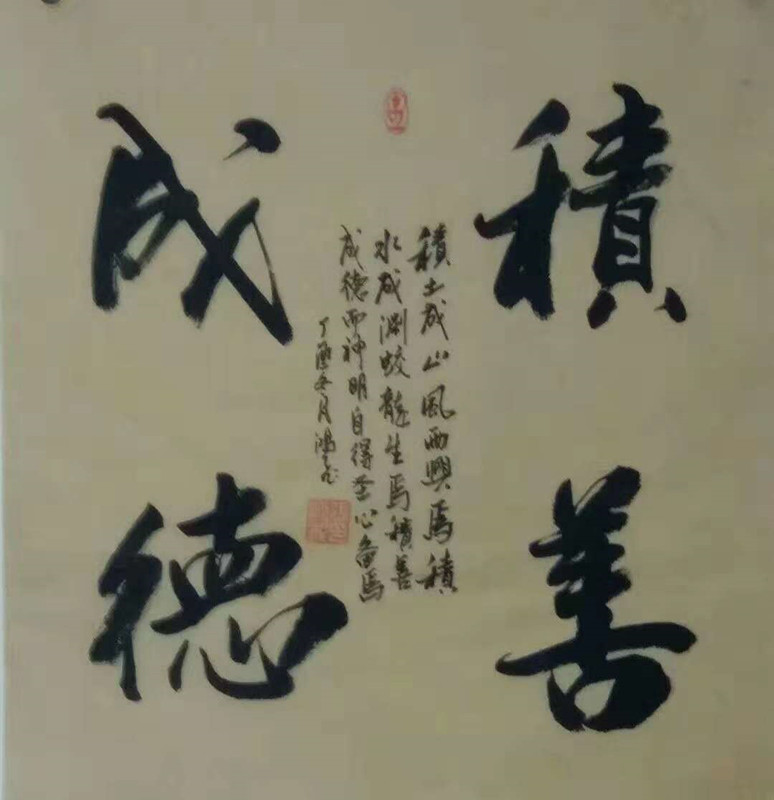 積善
成德
積土成山風雨興焉積
水成渊蛟龍生焉積善
成德而神明自得圣心备焉
丁酉冬月